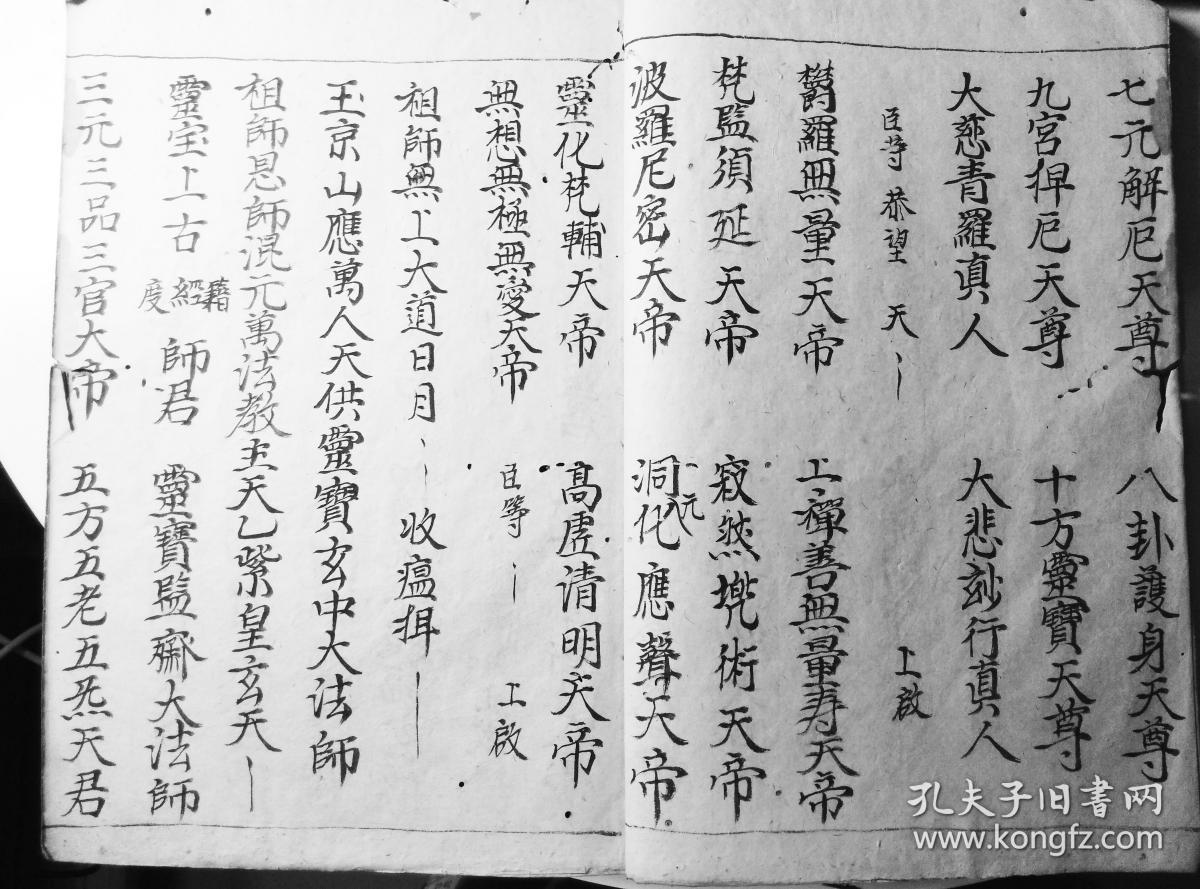 七元解厄天尊 八卦護身天尊
九宮捍厄天尊 十方靈寶天尊
大慈青羅真人 大悲玅行真人
臣等 恭望 天 上啟
欝羅無量天帝 上禪善無量寿天帝
梵監須延天帝 寂然兠術天帝
波羅尼密天帝 洞化八元應聲天帝
靈化梵輔天帝 高虛清明天帝
無想無極無愛天帝 臣等 上啟
祖師無上大道日月 收瘟
玉京山應萬人天供靈寶玄中大法師
祖師恩師混元萬法教主天乙紫皇玄天
靈宝上古 籍經度 師君 靈寶監齋大法師
三元三品三官大帝 五方五老五炁天君
孔夫子旧書网
www.kongfz.com